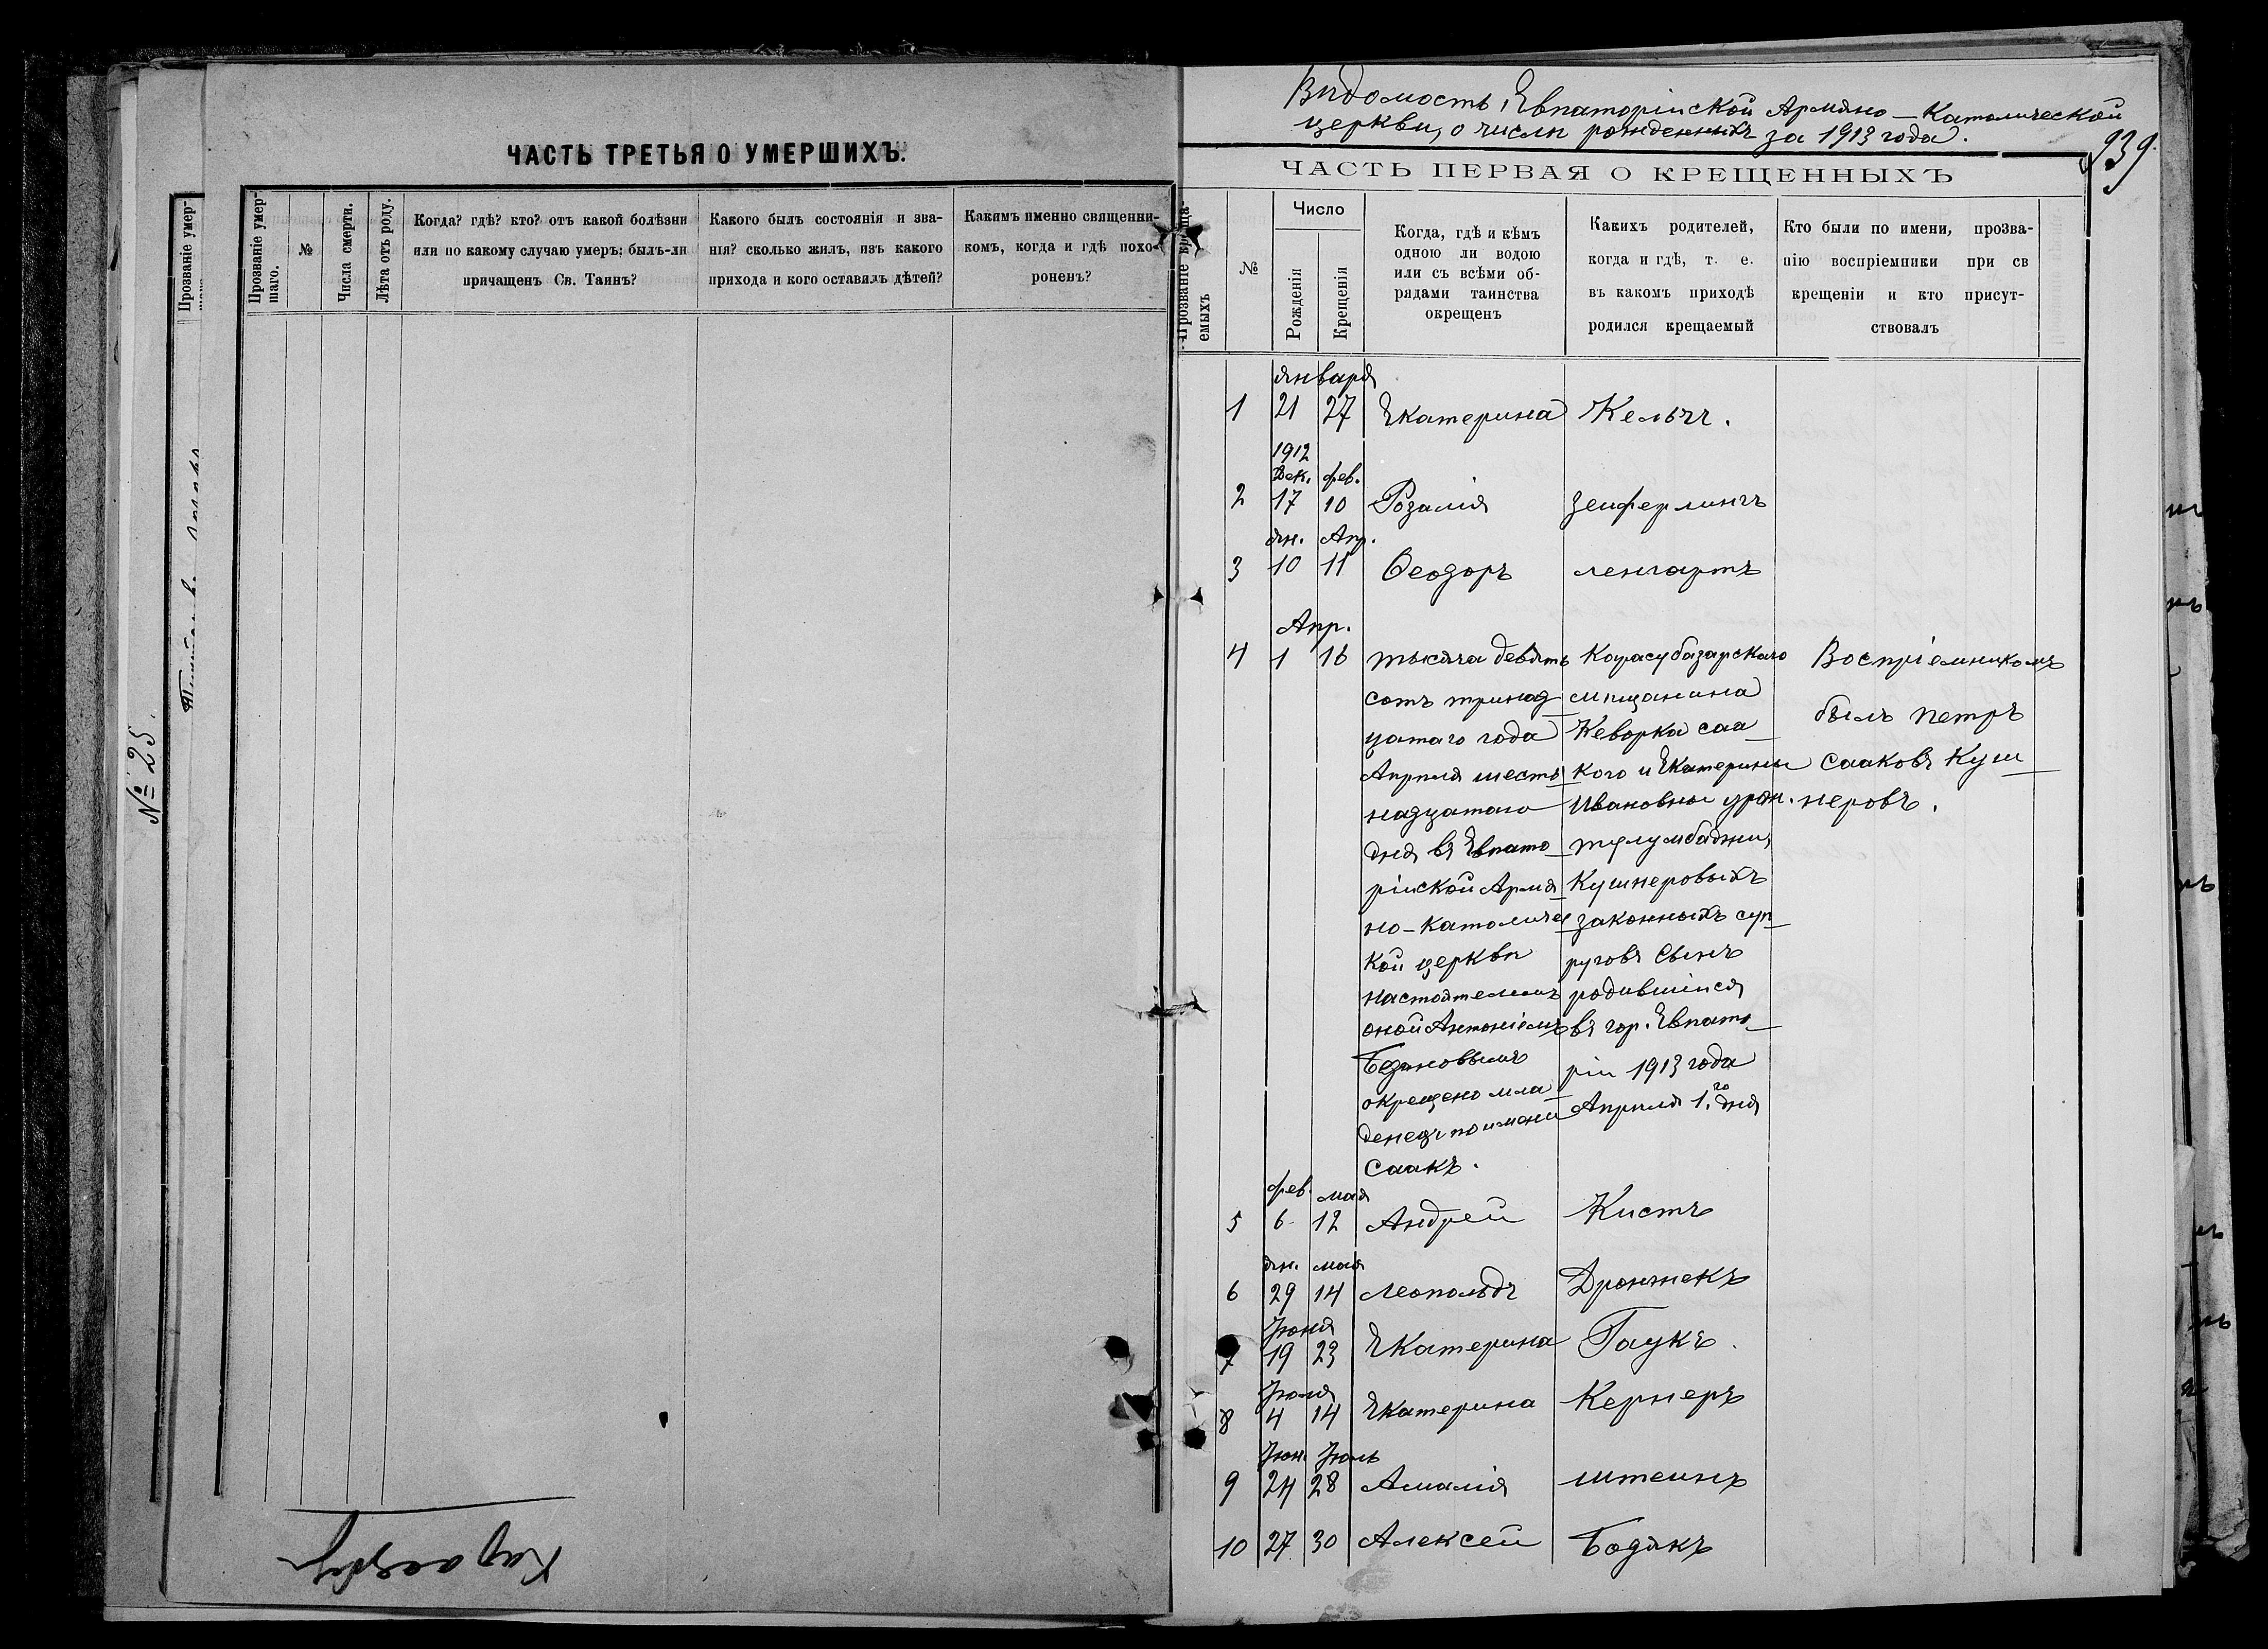 № 25.
Прозваніе умер-
ЧАСТЬ ТРЕТЬЯ О УМЕРШИХЪ.
Прозваніе умер-
шаго.
№
Числа смерти.
Лѣта отъ роду.
Когда? гдѣ? кто? отъ какой болѣзни
или по какому случаю умеръ: былъ-ли
причащенъ Св. Таинъ?
Какого былъ состоянія и зва-
нія? сколько жилъ, изъ какого
прихода и кого оставилъ дѣтей?
Какимъ именно священни-
комъ, когда и гдѣ похо-
роненъ?
Вѣдомость, Евпаторійской Армяно-Католической
церкви, о числѣ рожденныхъ за 1913 года.
939
ЧАСТЬ ПЕРВАЯ О КРЕЩЕННЫХЪ
Прозваніе креща-
емыхъ
№
Число
Рожденія
Крещенія
Когда, гдѣ и кѣмъ
одною ли водою
или съ всѣми об-
рядами таинства
окрещенъ
Какихъ родителей,
когда и гдѣ, т. е.
въ какомъ приходѣ
родился крещаемый
Кто были по имени, прозва-
нію воспріемники при св
крещеніи и кто присут-
ствовалъ
Января
1 21 27 Екатерина Кельчъ.
1912
Дек. фев.
2 17 10 Розалія Зеиферлингъ
Ян. Апр.
3 10 11 Ѳеодоръ Ленгартъ
Апр.
4 1 16
тысяча девять
сотъ тринад
цатаго года
Апрѣля шесть
надцатаго
дня въ Евпато
рійской Армя
но-Католичес
кой церкви
настоятелемъ
оной Антоніемъ
Безановымъ
окрещено мла
денецъ по имени
Саакъ.
Карасубазарскаго
мѣщанина
Кеворка Саа
кого и Екатерины
Ивановны урож.
Тулумбаджи,
Кушнеровыхъ
законныхъ суп
руговъ сынъ
родившійся
въ гор. Евпато
ріи 1913 года
Апрѣля 1.го дня
Воспріемникомъ
былъ Петръ
Сааковъ Куш
неровъ.
фев. мая
5 6 12 Андрей Кистъ
Ян. мая
6 29 14 Леопольдъ Дронжекъ
Іюня
7 19 23 Екатерина Гаукъ.
Іюля
8 4 14 Екатерина Кернеръ
Іюн. Іюль
9 24 28 Амалія Штеинъ
10 27 30 Алексей Бодякъ